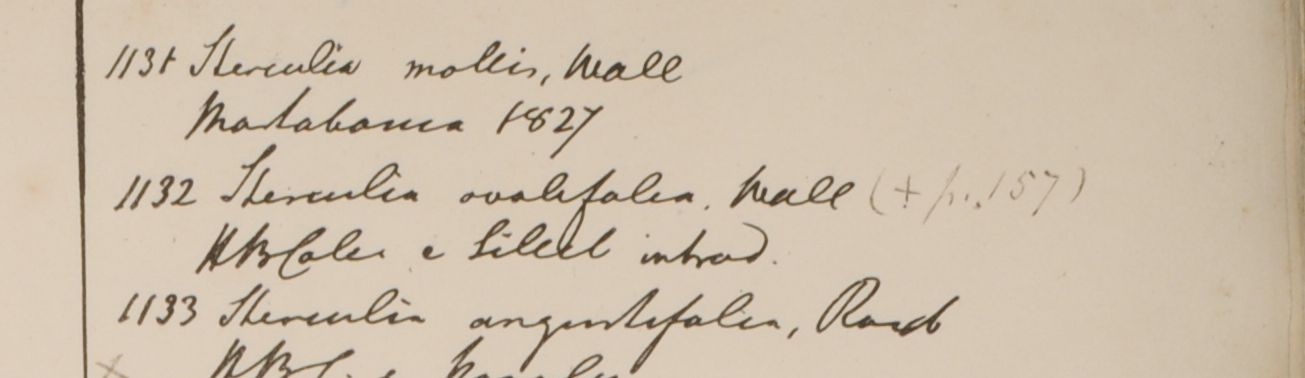 1131 Sterculia mollis, Wall
Martabania 1827
1132 Sterculia ovalifolia, Wall (+ p. 157)
HBCalc e Silhet introd.
1133 Sterculia angustifolia, Roxb
HBC. e